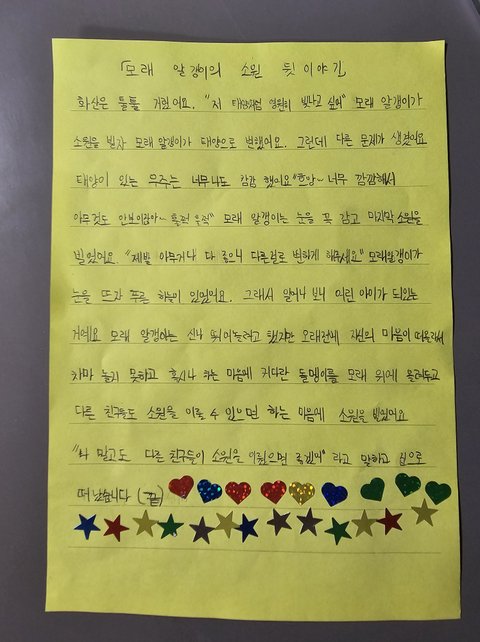 「모래 알갱이의 소원 뒷 이야기」
화산은 툴툴 거렸어요. "저 태양처럼 영원히 빛나고 싶어" 모래 알갱이가
소원을 빌자 모래 알갱이가 태양으로 변했어요. 그런데 다른 문제가 생겼어요
태양이 있는 우주는 너무나도 캄캄 했어요 "흐앙~ 너무 깜깜해서
아무것도 안보이잖아~ 훌쩍 우럭" 모래 알갱이는 눈을 꼭 감고 마지막 소원을
빌었어요. "제발 아무거나 다 좋으니 다른걸로 변하게 해주세요" 모래알갱이가
눈을 뜨자 푸른 하늘이 있었어요. 그래서 일어나 보니 어린 아이가 되있는
거예요 모래 알갱이는 신나 뛰어놀려고 했지만 오래전에 자신의 마음이 떠올라서
차마 놀지 못하고 혹시나 하는 마음에 커다란 돌멩이를 모래 위에 올려두고
다른 친구들도 소원을 이룰 수 있으면 하는 마음에 소원을 빌었어요
"나 말고도 다른 친구들이 소원을 이뤘으면 좋겠어" 라고 말하고 집으로
떠났습니다 (끝)